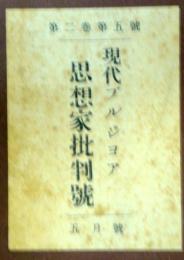 第二巻第五號
現代ブルジヨア
思想家批判號
五月號